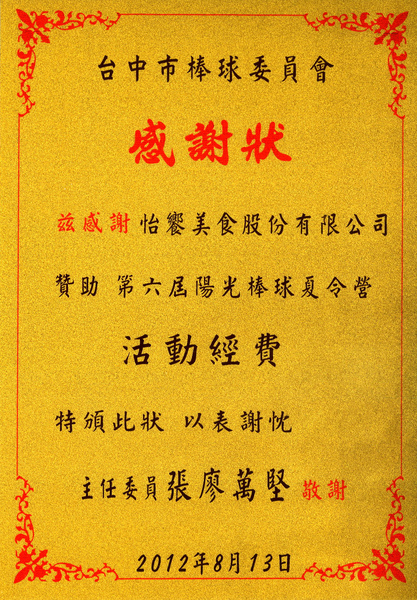 台中市棒球委員會
感謝狀
玆感謝怡饗美食股份有限公司
贊助 第六屆陽光棒球夏令營
活動經費
特頒此狀 以表謝忱
主任委員張廖萬堅 敬謝
2012年8月13日